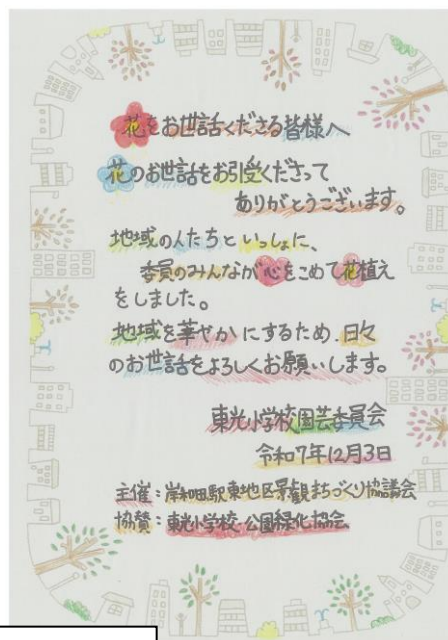 花をお世話くださる皆様へ
花のお世話をお引受くださって
ありがとうございます。
地域の人たちといっしょに、
委員のみんなが心をこめて花植え
をしました。
地域を華やかにするため、日々
のお世話をよろしくお願いします。
東光小学校園芸委員会
令和7年12月3日
主催:岸和田駅東地区景観まちづくり協議会
協賛:東光小学校・公園緑化協会